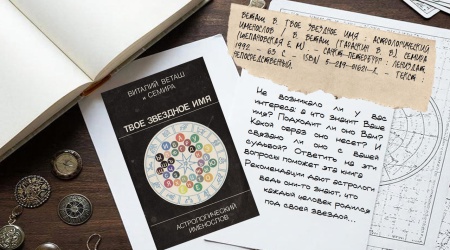 ВИТАЛИЙ ВЕТАШ
и СЕМИРА
ТВОЕ ЗВЕЗДНОЕ ИМЯ
АСТРОЛОГИЧЕСКИЙ
ИМЕНОСЛОВ
ВЕТАШ В. ТВОЕ ЗВЕЗДНОЕ ИМЯ : АСТРОЛОГИЧЕСКИЙ
ИМЕНОСЛОВ / В. ВЕТАШ В) СЕМИРА
(ЩЕПАНОВСКАЯ Е. М) — САНКТ-ПЕТЕРБУРГ : ЛЕНИЗДАТ,
1992. - 63 С. - ISBN 5-289-01621-2. - ТЕКСТ :
НЕПОСРЕДСТВЕННЫЙ.
Не возникало ли у вас
интереса: а что значит Ваше
имя? Подходит ли оно Вам?
Какой образ оно несет? И
связано ли оно с вашей
судьбой? Ответить на эти
вопросы поможет эта книга
Рекомендации дают астрологи
ведь они-то знают, что
каждый человек родился
под своей звездой...